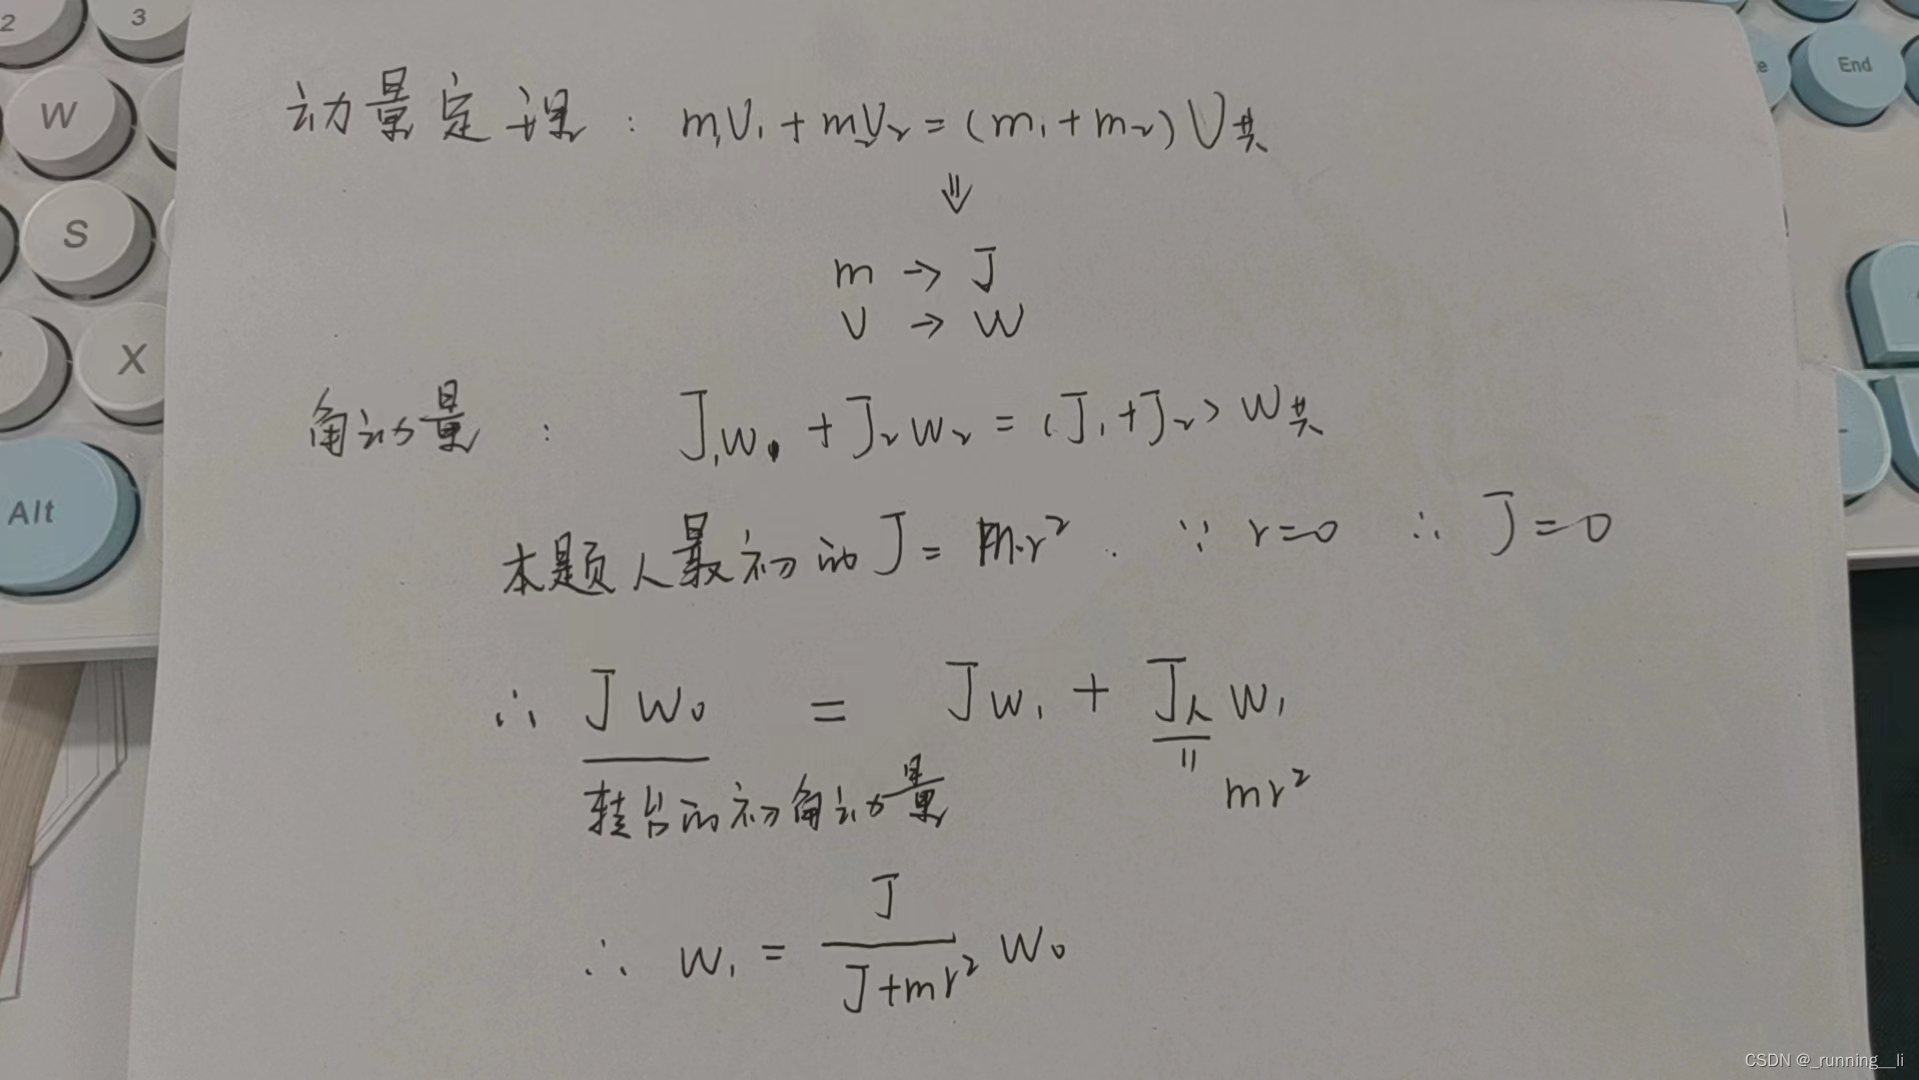 2
3
W
S
X
Alt
End
动量定理：m₁V₁+m₂V₂=(m₁+m₂)V共
⇓
m → J
V → W
角动量：J₁W₁+J₂W₂=(J₁+J₂)W共
本题人最初的J=m·r². ∵ r=0 ∴ J=0
∴ JW₀ = JW₁ + J人W₁
转台的初角动量 = mr²
∴ W₁ = J/(J+mr²) W₀
CSDN @_running__li